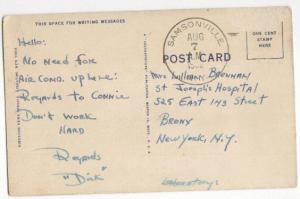 THIS SPACE FOR WRITING MESSAGES
Hello:
No need for
Air Cond. up here.
Regards to Connie
Don't work
Hard
Regards
"Dick"
SAMSONVILLE
AUG
7
M
N.Y.
POST CARD
ONE CENT STAMP
HERE
William Brennan
St Joseph's Hospital
525 East 143 Street
Bronx
New York, N.Y.
Laboratory